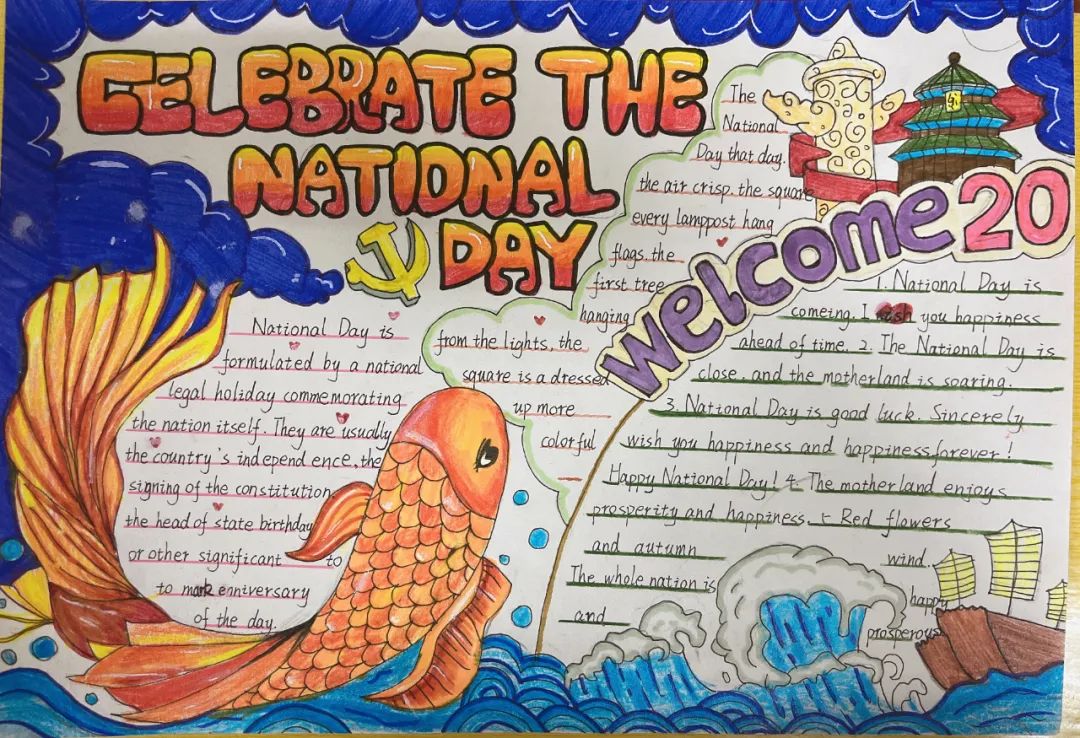 CELEBRATE THE
NATIONAL
DAY
National Day is
formulated by a national
legal holiday commemorating
the nation itself. They are usually
the country's independ ence, the
signing of the constitution,
the head of state birthday
or other significant to
to mark enniversary
of the day.
The
National
Day that day.
the air crisp. the square
every lamppost hang
flags. the
first tree
hanging
from the lights, the
square is a dressed
up more
colorful
Welcome 20
1. National Day is
comeing. I wish you happiness
ahead of time. 2. The National Day is
close. and the motherland is soaring.
3. National Day is good luck. Sincerely
wish you happiness and happinessforever!
Happy National Day! 4. The motherland enjoys
prosperity and happiness. 5 Red flowers
and autumn wind.
The whole nation is happy
and prosperous